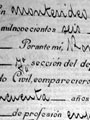 en Montevideo
milnovecientos seis
Por ante mí, R
sección del de
Civil, comparecieron
cuenta años
de profesión